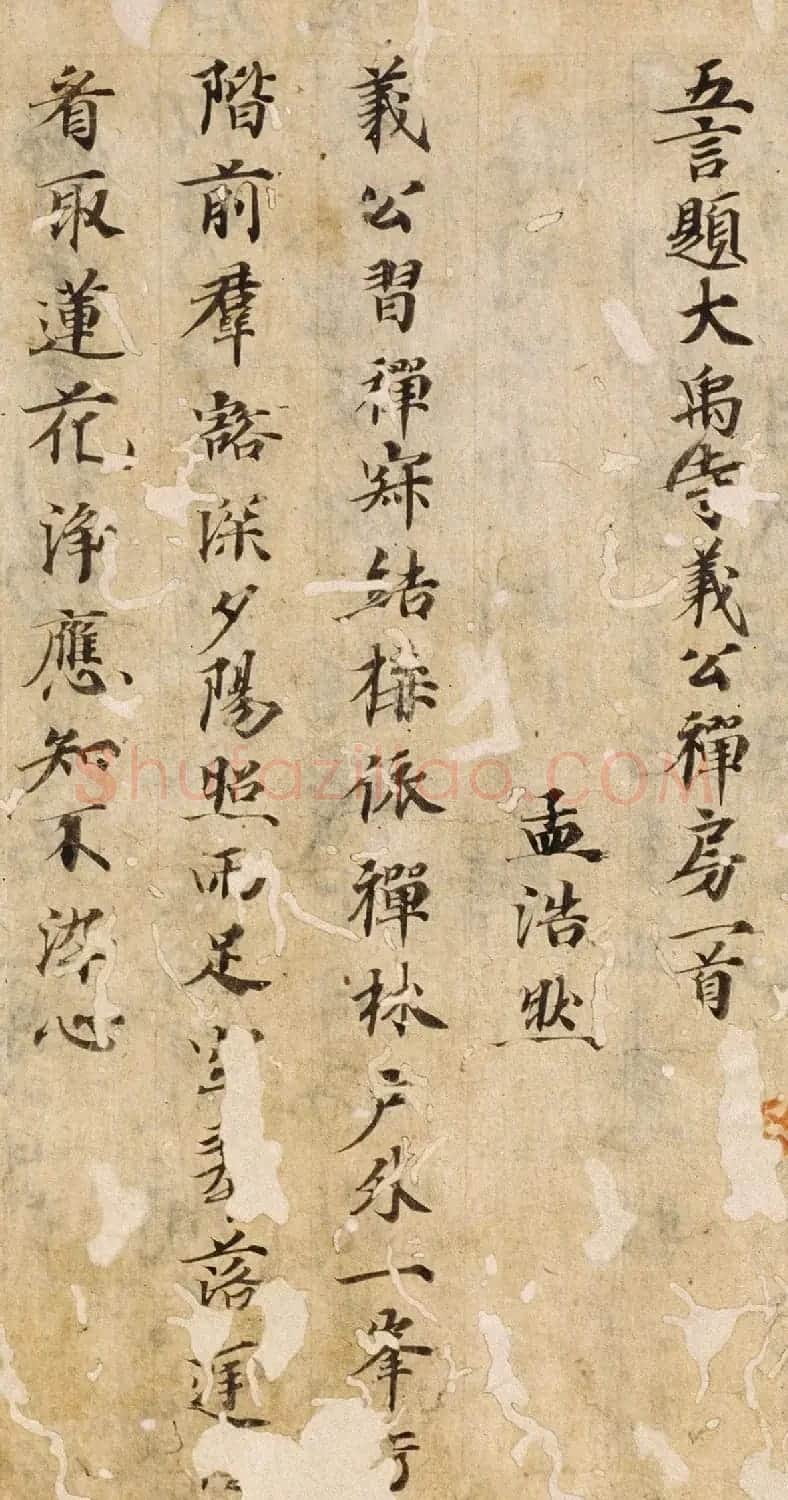 五言題大禹寺義公禪房一首
孟浩然
義公習禪寂結構依禪林户外一峯
階前羣豁深夕陽照雨足空落
看取蓮花淨應知不染心
Shufaziliao.COM